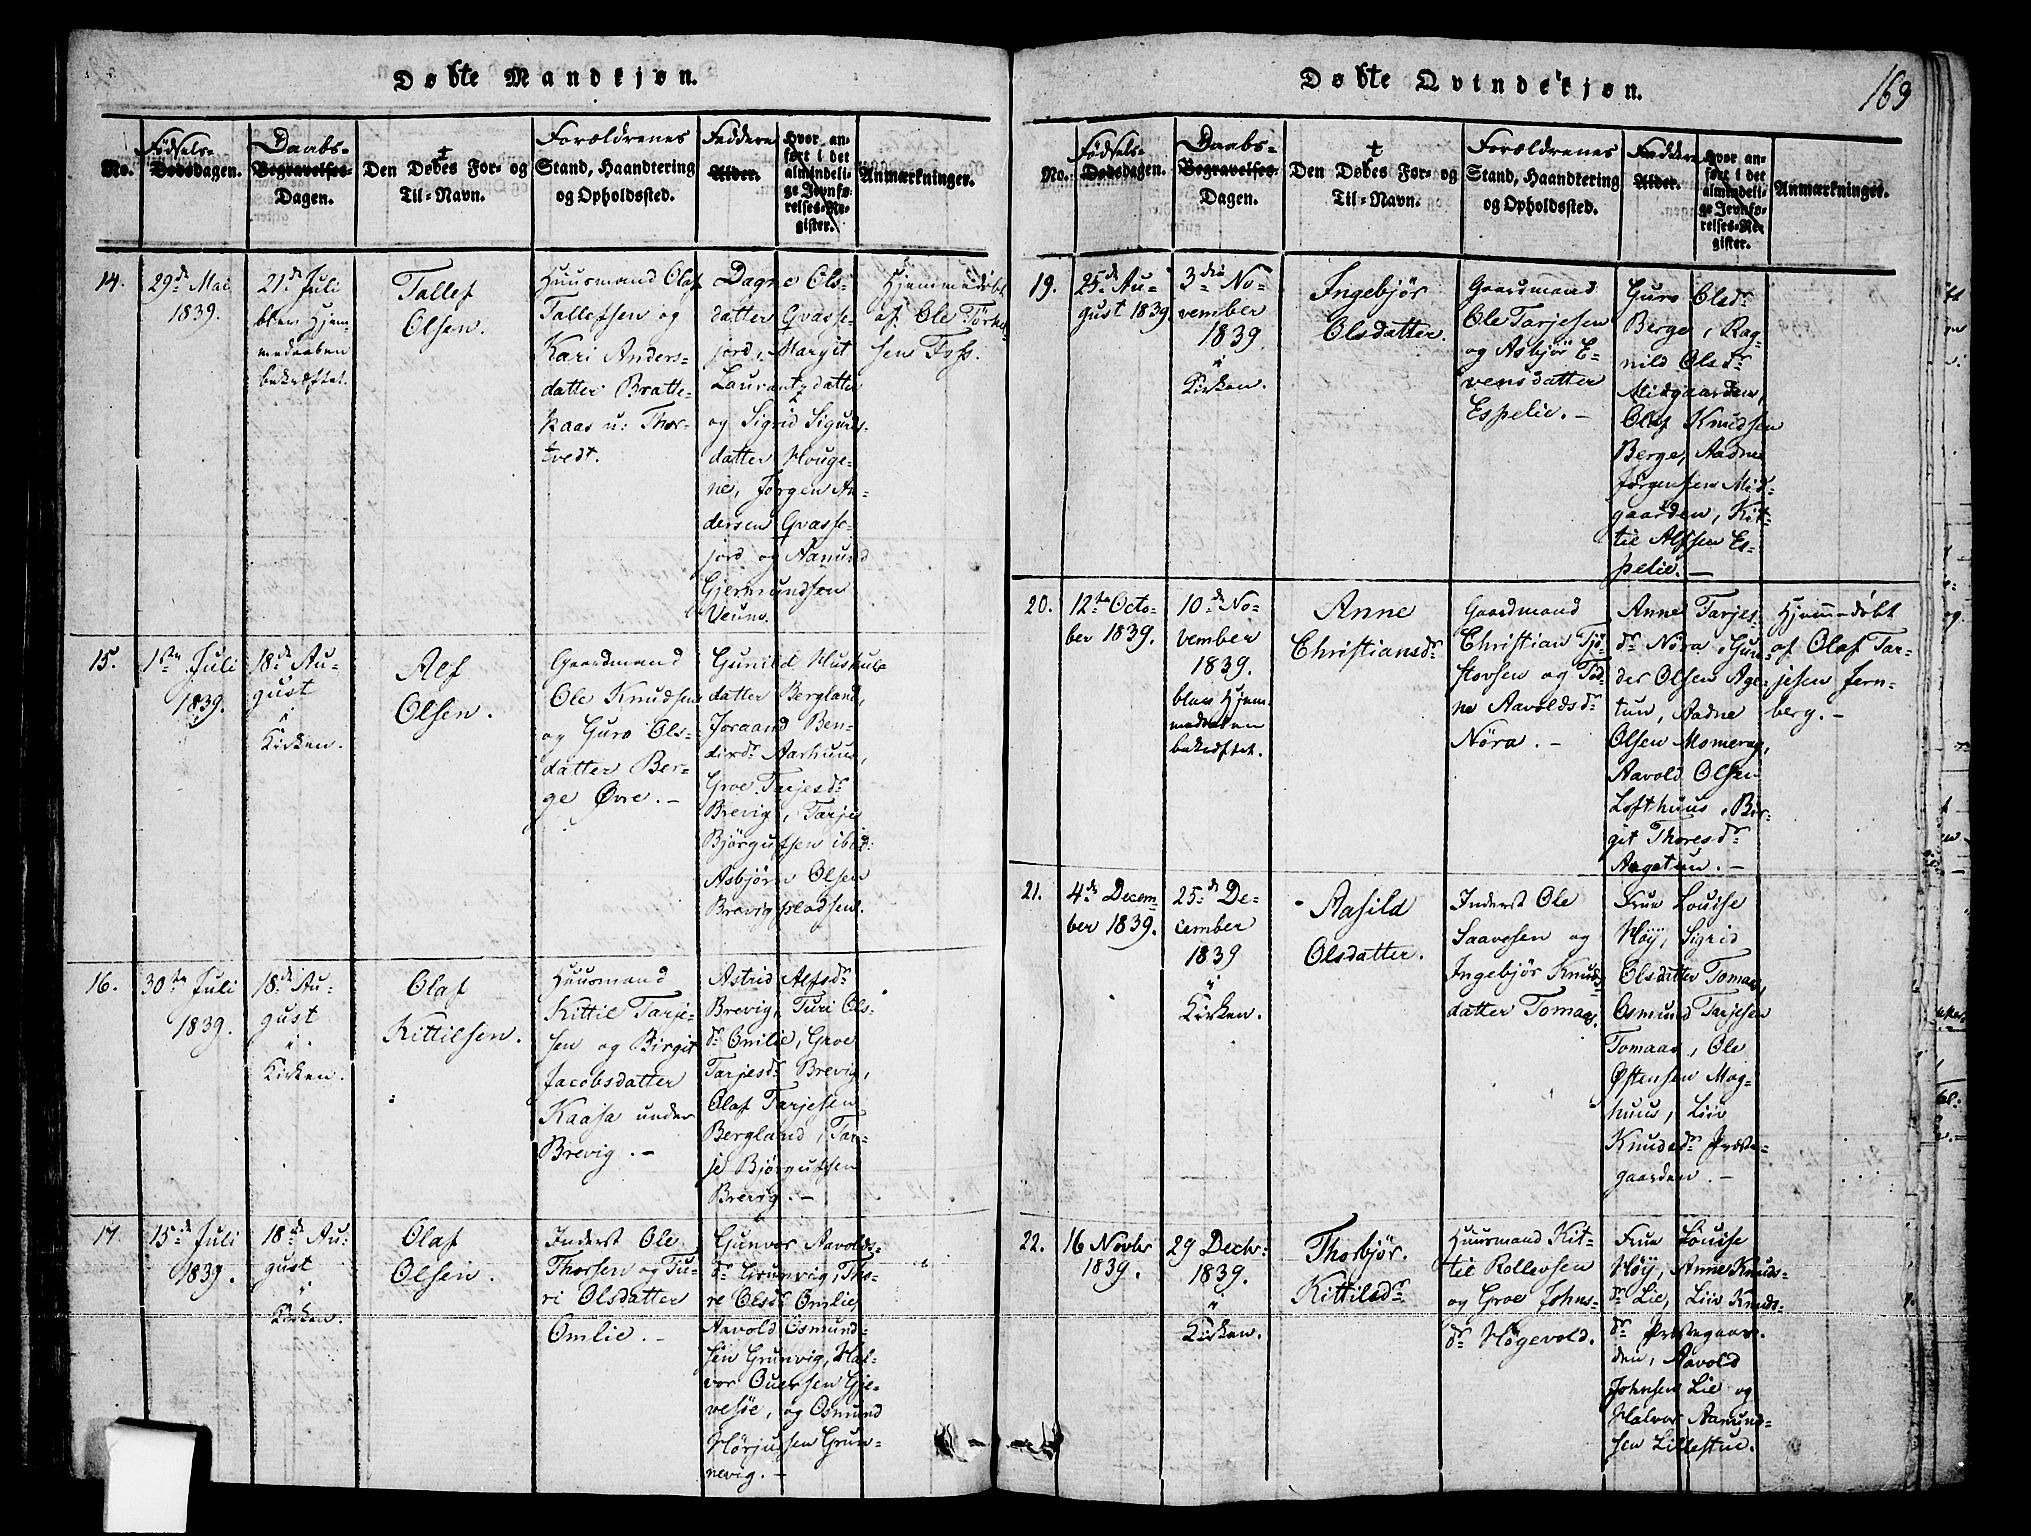 Døbte Mandkjøn.
No.
Fødsels-
Dødsdagen.
Daabs-
Begravelses-
Dagen.
Den Døbes For- og
Til-Navn.
Forældrenes
Stand, Haandtering
og Opholdssted.
Faddere
Alder.
Hvor an-
ført i det
almindeli-
ge Jevnfø-
relses-Re-
gister.
Anmærkninger.
14.
29de Mai
1839.
21de Juli
blev Hjem
medaaben
bekræftet.
Tallef
Olsen.
Huusmand Olaf
Tallefsen og
Kari Anders-
datter Bratte-
kaas u: Thor-
tvedt.
Dagne Ols-
datter Qvasse-
jord, Margit
Laurantzdatter
og Sigrid Sigurds-
datter Houge-
ne, Jørgen An-
dersen Qvasse-
jord og Aamund
Gjermundsen
Veum.
Hjemmedøbt
af Ole Tørke-
sen Foss.
15.
1ste Juli
1839.
18de Au-
gust
i
Kirken.
Alf
Olsen.
Gaardmand
Ole Knudsen
og Guro Ols-
datter Ber-
ge Øvre. -
Gunild
datter Bergland,
Joraand Ben-
dixdr Aarhuus,
Groe Tarjesdr
Brevig, Tarje
Bjørgufsen ibid:
Asbjørn Olsen
Brevigpladsen.
16.
30te Juli
1839.
18de Au-
gust
i
Kirken.
Olaf
Kittilsen.
Huusmand
Kittil Tarje-
sen og Birgit
Jacobsdatter
Kaasa under
Brevig. -
Astrid Alfsdr
Brevig, Turi Ols-
dr Omlie, Groe
Tarjesdr Brevig,
Olaf Tarjesen
Bergland, Tar-
je Bjørgufsen
Brevig. -
17
15de Juli
1839.
18de Au-
gust
i
Kirken.
Olaf
Olsen.
Inderst Ole
Thorsen og Tu-
ri Olsdatter
Omlie. -
Gunvor Aavolds-
dr Grunvig, Tho-
re Olsdr Omlie
Aavold Osmund-
sen Grunvig, Hal-
vor Ouersen Gje-
vesøe, og Osmund
Hørjufsen Grun-
nevig. -
Døbte Qvindekjøn.
169
No.
Fødsels-
Dødsdagen.
Daabs-
Begravelses-
Dagen.
Den Døbes For- og
Til-Navn.
Forældrenes
Stand, Haandtering
og Opholdssted.
Faddere
Alder.
Hvor an-
ført i det
almindeli-
ge Jevnfø-
relses-Re-
gister.
Anmærkninger.
19.
25de Au-
gust 1839.
3die No-
vember
1839.
i
Kirken.
Ingebjør
Olsdatter.
Gaardmand
Ole Tarjesen
og Asbjør E-
vensdatter
Espelie. -
Guro Olsdr
Berge, Rag-
nild Olsdr
Midgaarden,
Olaf Knudsen
Berge, Aadne
Jørgensen Mid-
gaarden, Kit-
til Alfsen Es-
pelie. -
20.
12te Octo-
ber 1839.
10de No-
vember
1839.
blev Hjem
medaaben
bekræftet.
Anne
Christiansdr
Gaardmand
Christian Tjø-
stovsen og Tod-
ne Aavoldsdr
Nøra. -
Anne Tarjes-
dr Nøra, Gun-
der Olsen Age-
tun, Aadne
Olsen Momerag,
Aavold Olsen
Lofthuus, Bir-
git Thoresdr
Aagetun. -
Hjemmedøbt
af Olaf Tar-
jesen Jern-
berg. -
21.
4de Decem-
ber 1839.
25de De-
cember
1839
i
Kirken.
Aasild
Olsdatter.
Inderst Ole
Saavesen og
Ingebjør Knuds-
datter Tomaas.
Frue Louise
Høy, Sigrid
Olsdatter Tomaas,
Osmund Tarjesen
Tomaas, Ole
Østensen Mog-
huus, Liv
Knudsdr Præste-
gaarden. -
22.
16 Novbr
1839.
29 Decbr
1839.
i
Kirken.
Thorbjør.
Kittilsdr
Huusmand Kit-
til Rollevsen
og Groe Johns-
dr Høgevold.
Frue Louise
Høy, Anne Knuds-
dr Lie, Liv Knuds-
dr Præstegaar-
den, Aavold
Johnsen Lie og
Halvor Aamund-
sen Lillestue.